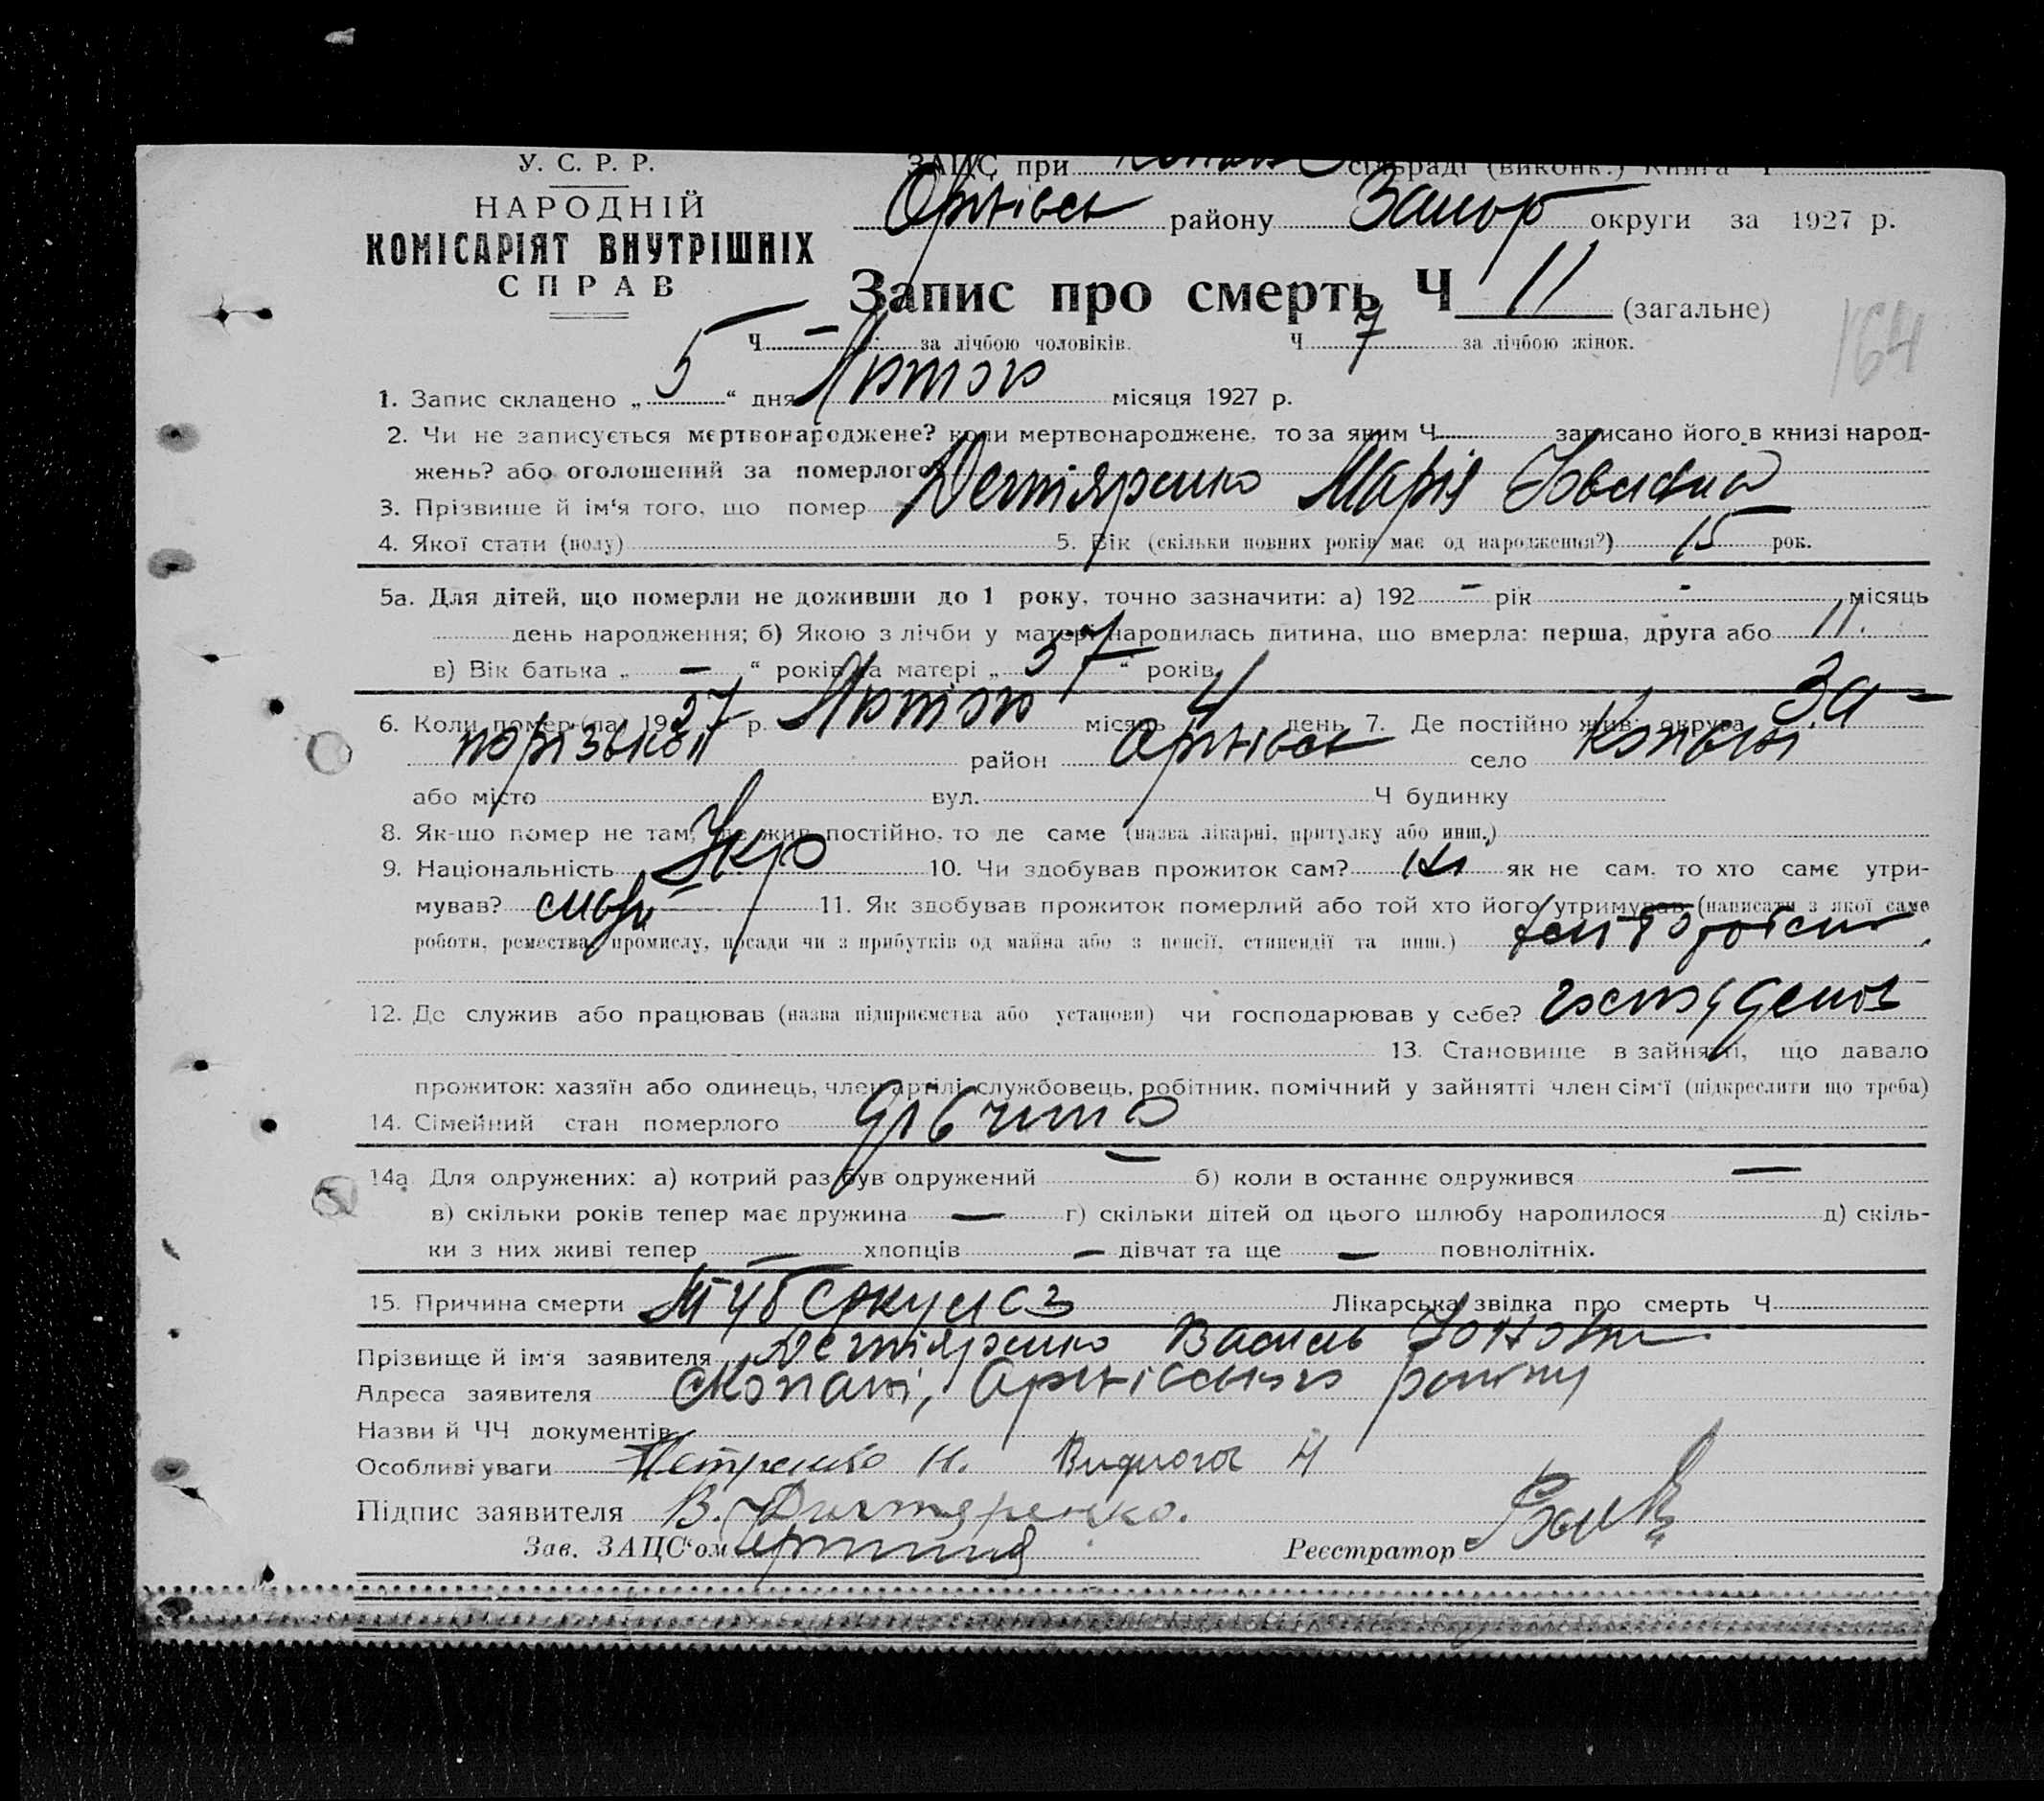 У. С. Р. Р.
НАРОДНІЙ
КОМІСАРІЯТ ВНУТРІШНІХ
СПРАВ
ЗАЦС при сільраді (виконк.) Книга Ч
Оріхівськ району Запор округи за 1927 р.
Запис про смерть Ч 11 (загальне)
164
Ч — за лічбою чоловіків. Ч 7 за лічбою жінок.
1. Запис складено „ 5 “ дня Лютого місяця 1927 р.
2. Чи не записується мертвонароджене? коли мертвонароджене, то за яким Ч записано його в книзі народ-
жень? або оголошений за померлого
3. Прізвище й ім‘я того, що помер Дегтяренко Марія
4. Якої стати (полу) 5. Вік (скільки повних років має од народження?) 15 рок.
5а. Для дітей, що померли не доживши до 1 року, точно зазначити: а) 192 – рік - місяць
день народження; б) Якою з лічби у матері народилась дитина, що вмерла: перша, друга або 11.
в) Вік батька „ — “ років та матері „ 57 “ років
6. Коли помер (ла) 1927 р. Лютого місяць 4 день 7. Де постійно жив: округа За-
порізької район Оріхівськ село Копані
або місто вул. Ч будинку
8. Як-що помер не там, де жив постійно, то де саме (назва лікарні, притулку або инш.)
9. Національність Укр 10. Чи здобував прожиток сам? ні як не сам, то хто саме утри-
мував? 11. Як здобував прожиток померлий або той хто його утримував (написати з якої саме
роботи, ремества, промислу, посади чи з прибутків од майна або з пенсії, стипендії та инш.)
12. Де служив або працював (назва підприємства або установи) чи господарював у себе?
13. Становище в зайнятті, що давало
прожиток: хазяїн або одинець, член артілі, службовець, робітник, помічний у зайнятті член сім‘ї (підкреслити що треба)
14. Сімейний стан померлого дівчина
14а Для одружених: а) котрий раз був одружений — б) коли в останнє одружився —
в) скільки років тепер має дружина — г) скільки дітей од цього шлюбу народилося д) скіль-
ки з них живі тепер — хлопців — дівчат та ще — повнолітніх.
15. Причина смерти туберкульоз Лікарська звідка про смерть Ч
Прізвище й ім‘я заявителя Дегтяренко Василь
Адреса заявителя с Копані, Оріхівського району
Назви й ЧЧ документів
Особливі уваги
Підпис заявителя В. Дигтяренко.
Зав. ЗАЦС‘ом Реєстратор